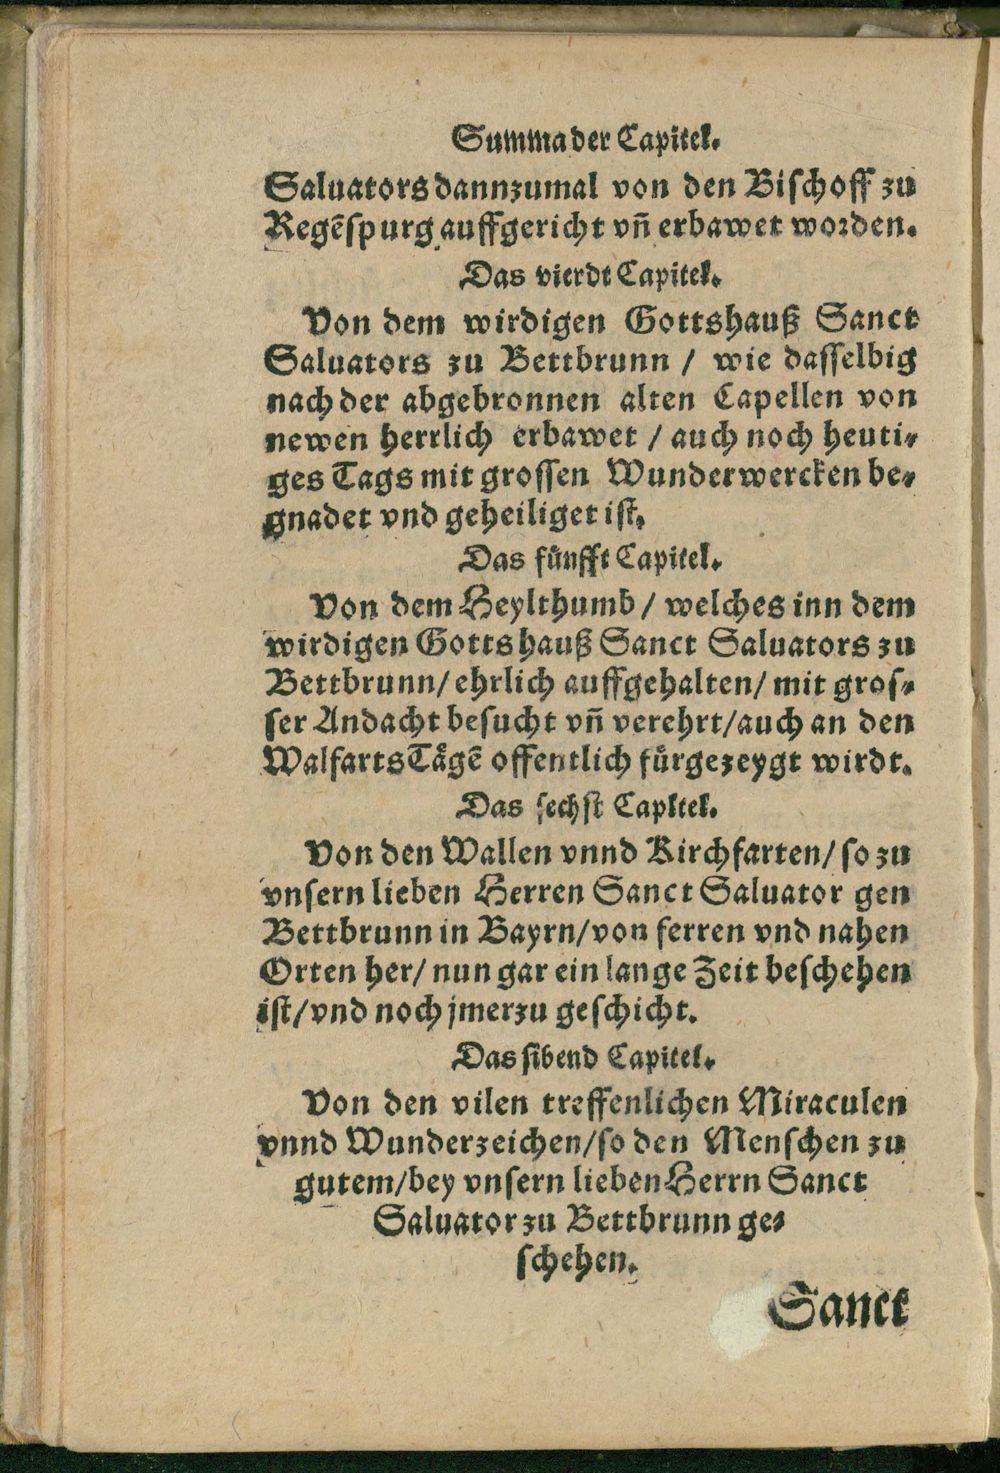 Summa der Capitel.
Saluators dannzumal von den Bischoff zu
Regẽspurg auffgericht vñ erbawet worden.
Das vierdt Capitel.
Von dem wirdigen Gottshauß Sanct
Saluators zu Bettbrunn / wie dasselbig
nach der abgebronnen alten Capellen von
newen herrlich erbawet / auch noch heuti-
ges Tags mit grossen Wunderwercken be-
gnadet vnd geheiliget ist.
Das fünfft Capitel.
Von dem Heylthumb / welches inn dem
wirdigen Gottshauß Sanct Saluators zu
Bettbrunn / ehrlich auffgehalten / mit gros-
ser Andacht besucht vñ verehrt / auch an den
Walfarts Tägẽ offentlich fürgezeygt wirdt.
Das sechst Capitel.
Von den Wallen vnnd Kirchfarten / so zu
vnsern lieben Herren Sanct Saluator gen
Bettbrunn in Bayrn / von ferren vnd nahen
Orten her / nun gar ein lange Zeit beschehen
ist / vnd noch jmerzu geschicht.
Das sibend Capitel.
Von den vilen treffenlichen Miraculen
vnnd Wunderzeichen / so den Menschen zu
gutem / bey vnsern lieben Herrn Sanct
Saluator zu Bettbrunn ge-
schehen.
Sanct